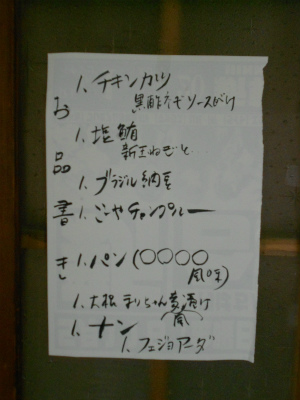 お品書き
1. チキンカツ
黒酢ネギソースがけ
1. 塩鮪
新玉ねぎと
1. ブラジル納豆
1. ごーやチャンプルー
1. パン(〇〇〇〇
風味)
1. 大松まりちゃん
漬け
1. ナン(風)
1. フェジョアーダ